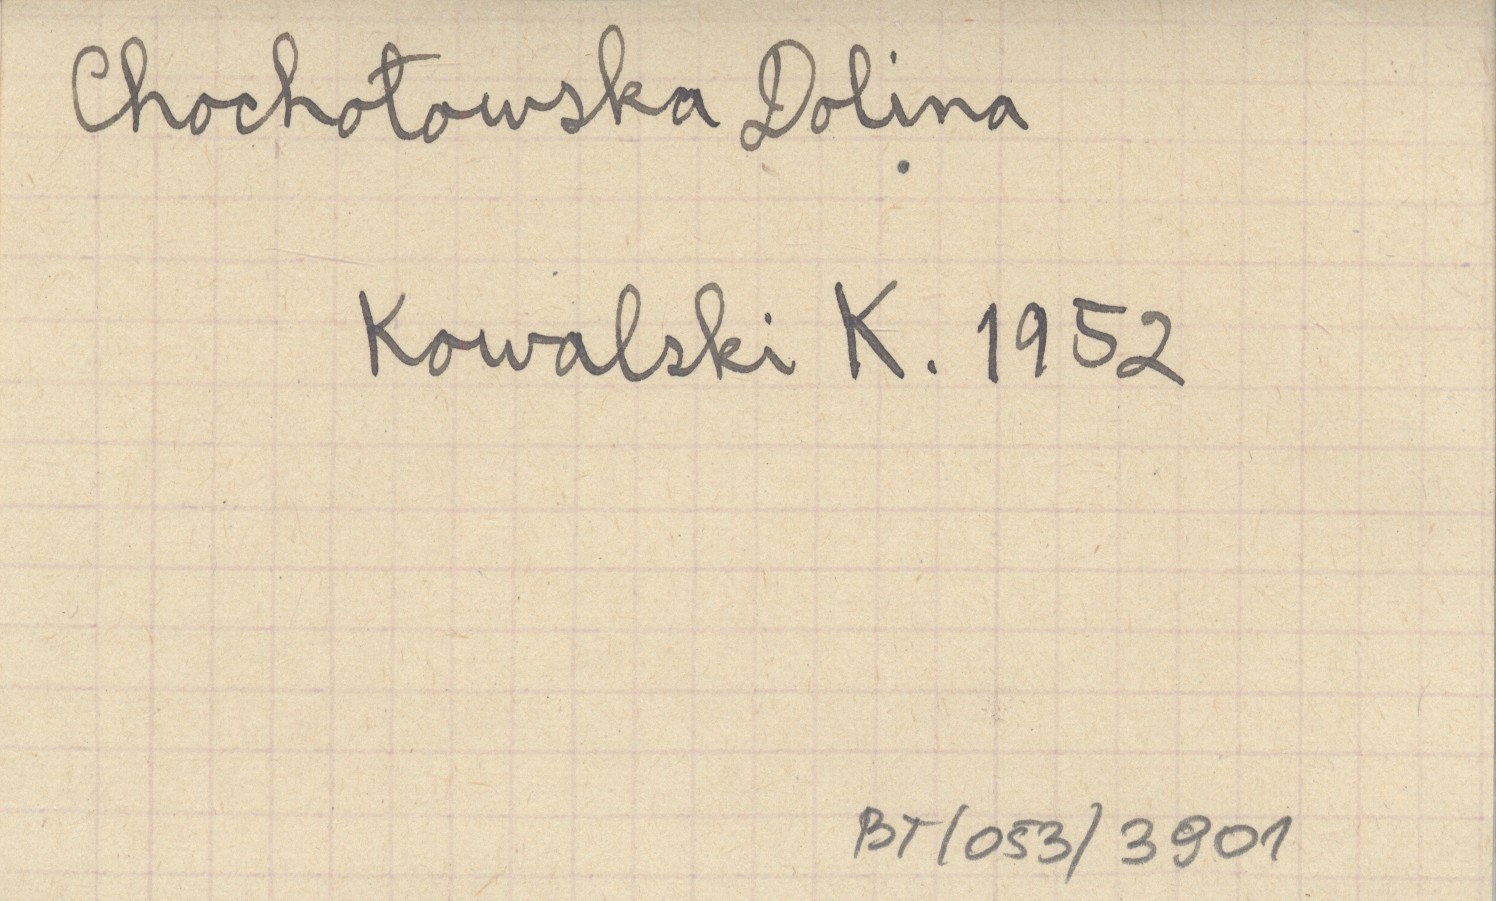 Chochołowska Dolina
Kowalski K. 1952
BT/053/3901